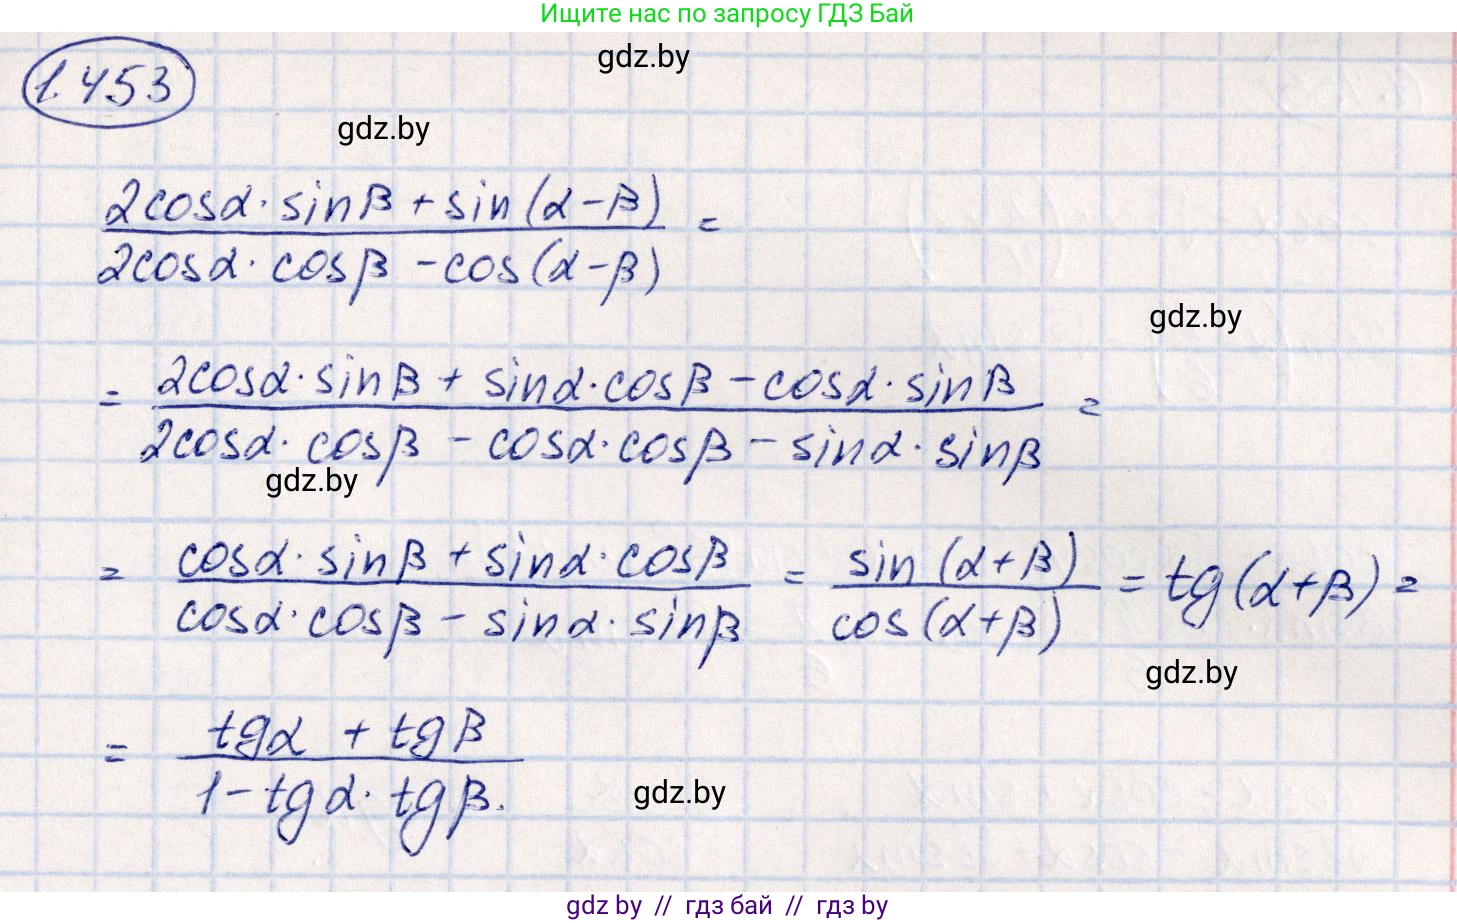 Ищите нас по запросу ГДЗ Бай
gdz.by
1.453
gdz.by
2cosα·sinβ+sin(α-β) =
2cosα·cosβ-cos(α-β)
gdz.by
= 2cosα·sinβ+sinα·cosβ-cosα·sinβ =
2cosα·cosβ-cosα·cosβ-sinα·sinβ
gdz.by
= cosα·sinβ+sinα·cosβ = sin(α+β) = tg(α+β) =
cosα·cosβ-sinα·sinβ cos(α+β)
gdz.by
= tgα + tgβ
1-tgα·tgβ.
gdz.by
gdz by // гдз бай // гдз by